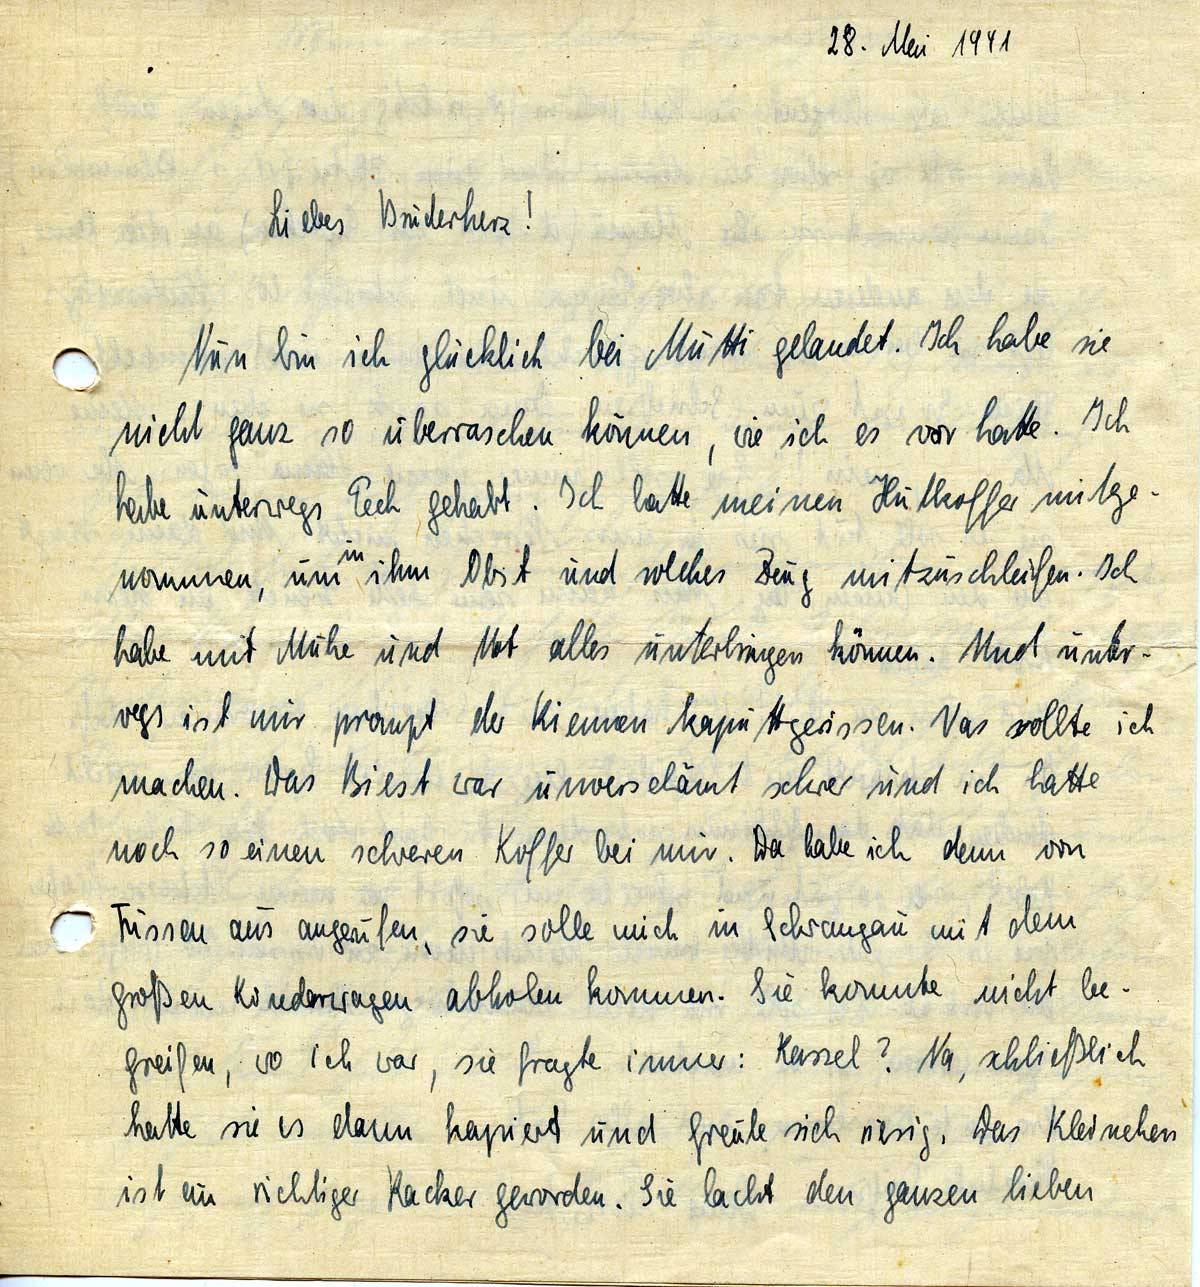 28. Mai 1941
Liebes Bruderherz!
Nun bin ich glücklich bei Mutti gelandet. Ich habe sie
nicht ganz so überraschen können, wie ich es vor hatte. Ich
habe unterwegs Pech gehabt. Ich hatte meinen Hutkoffer mitge-
nommen, um in ihm Obst und solches Zeug mitzuschleifen. Ich
habe mit Mühe und Not alles unterbringen können. Und unter-
wegs ist mir prompt der Riemen kaputtgerissen. Was sollte ich
machen. Das Biest war unverschämt schwer und ich hatte
noch so einen schweren Koffer bei mir. Da habe ich denn von
Füssen aus angerufen, sie solle mich in Schwangau mit dem
großen Kinderwagen abholen kommen. Sie konnte nicht be-
greifen, wo ich war, sie fragte immer: Kassel? Na, schließlich
hatte sie es dann kapiert und freute sich riesig. Das Kleinchen
ist ein richtiger Racker geworden. Sie lacht den ganzen lieben